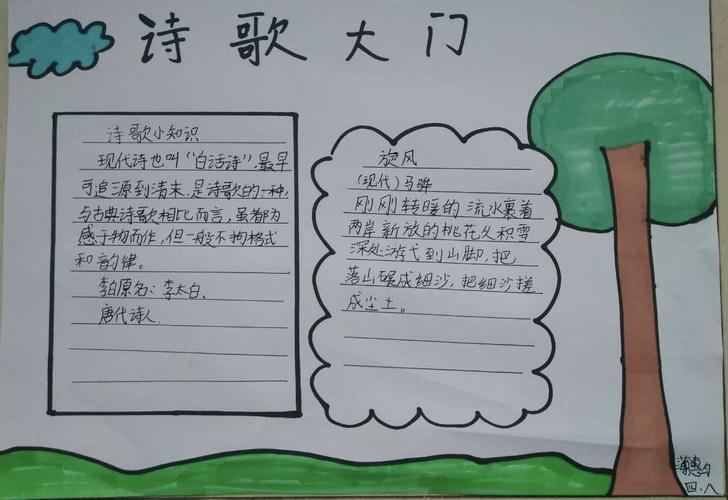 诗歌大门
诗歌小知识
现代诗也叫“白话诗”,最早
可追源到清末,是诗歌的一种,
与古典诗歌相比而言,虽都为
感于物而作,但一般不拘格式
和韵律。
李白原名:李太白、
唐代诗人
旋风
(现代)马骅
刚刚转暖的流水裹着
两岸新放的桃花久积雪
深处游弋到山脚,把
落山碾成细沙,把细沙搓
成尘土。
四.八